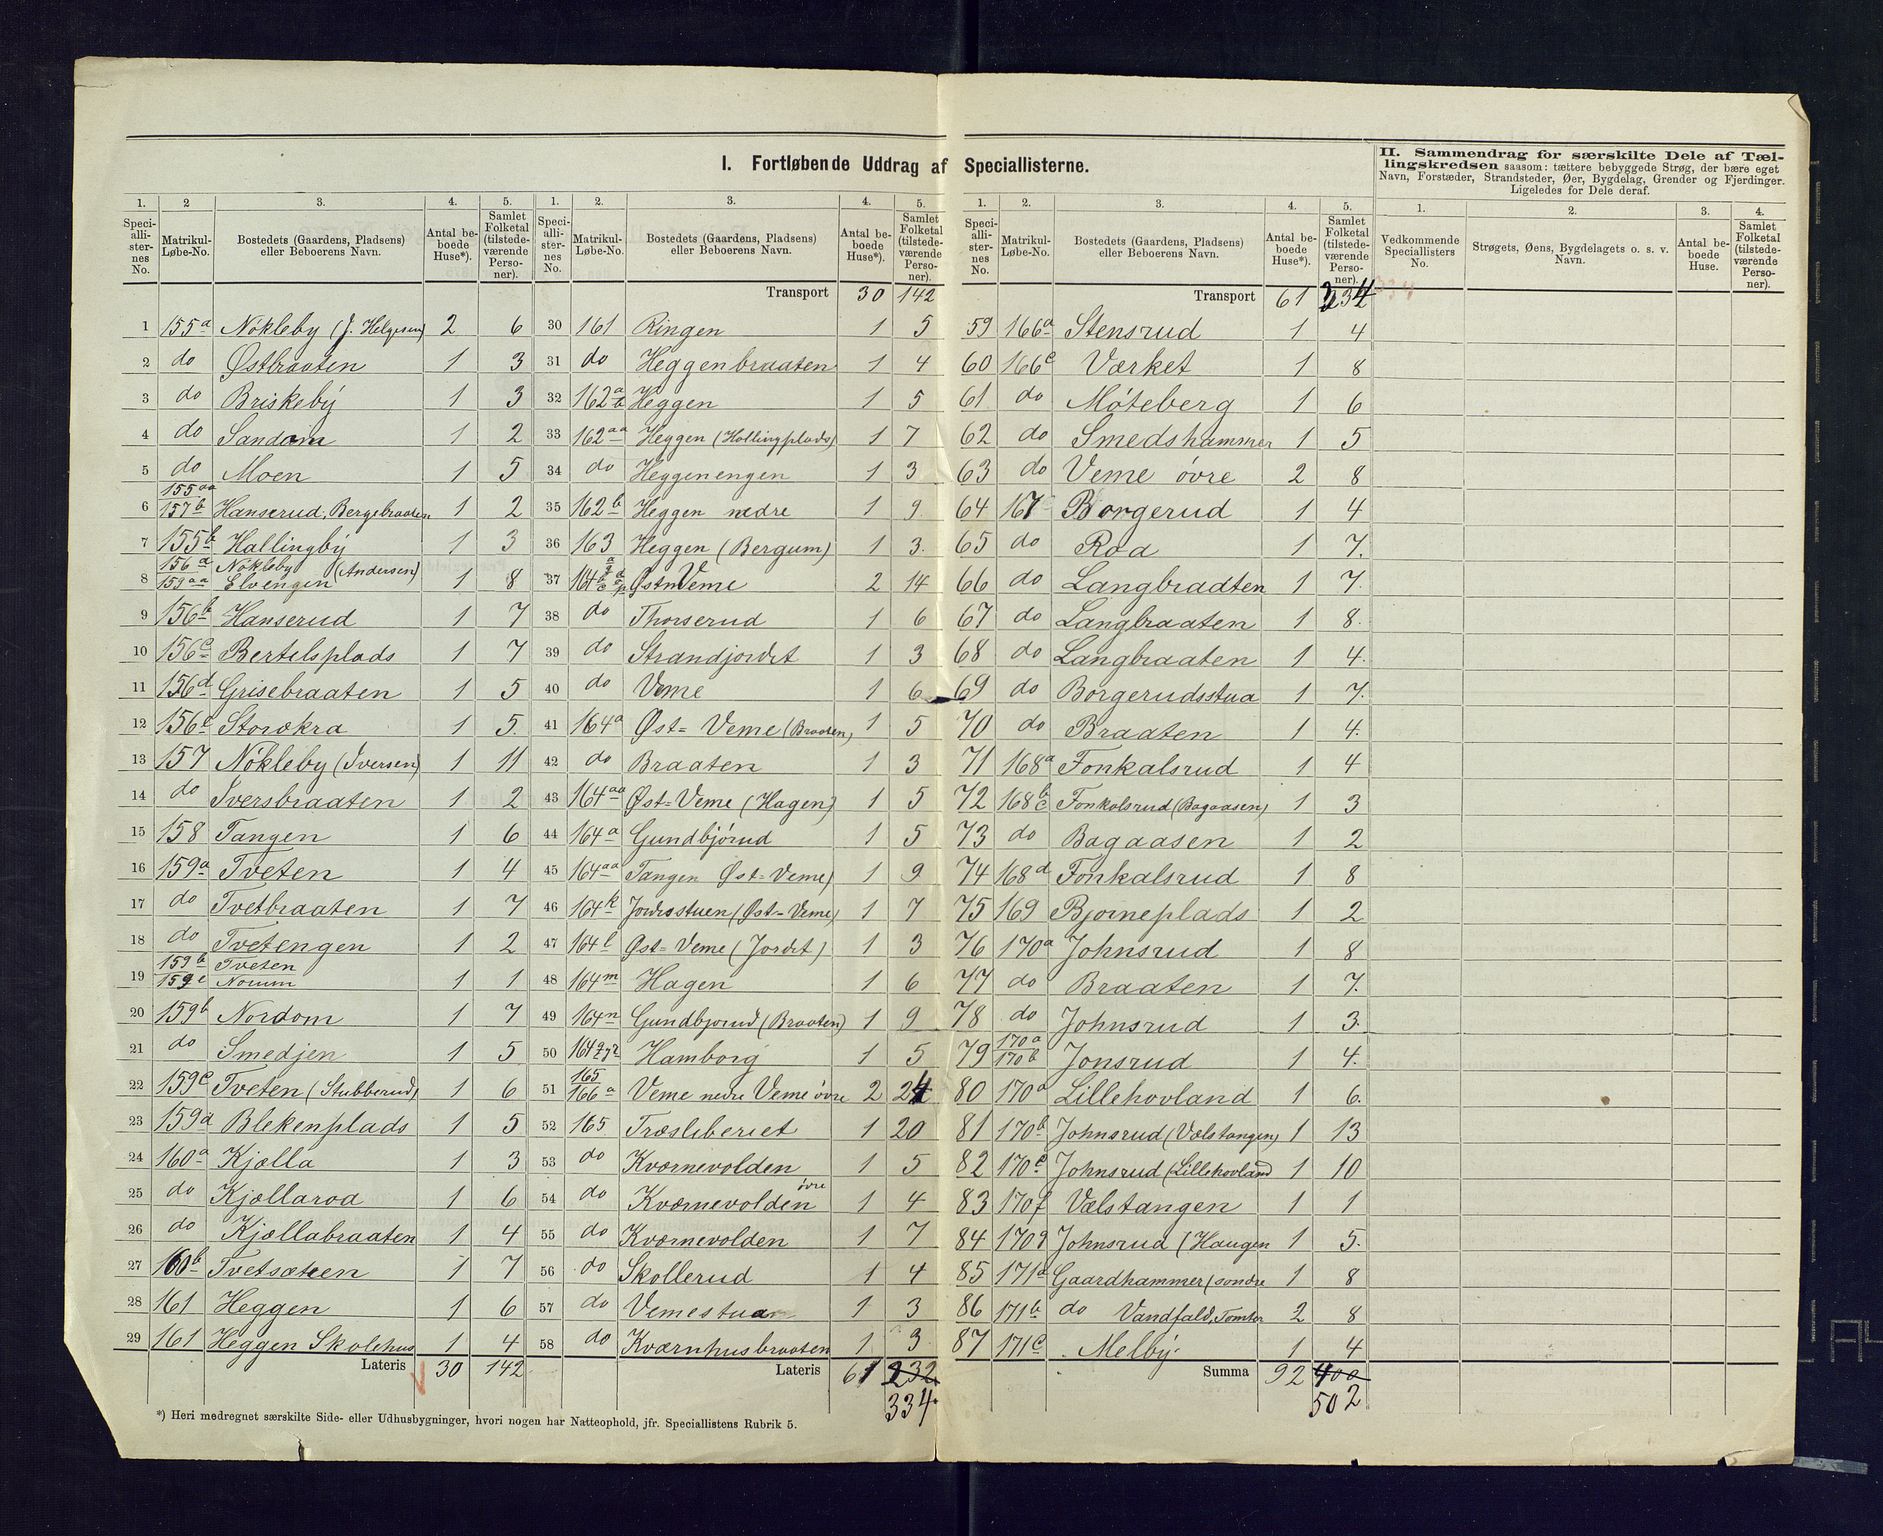 I. Fortløbende Uddrag af Speciallisterne.
II. Sammendrag for særskilte Dele af Tællingskredsen saasom: tættere bebyggede Strøg, der bære eget Navn, Forstæder, Strandsteder, Øer, Bygdelag, Grender og Fjerdinger. Ligeledes for Dele deraf.
1. 2 3. 4. 5.
Speciallisternes No. Matrikul-Løbe-No. Bostedets (Gaardens, Pladsens) eller Beboerens Navn. Antal beboede Huse*). Samlet Folketal (tilstedeværende Personer).
1 155a Nökleby (J. Helgesen) 2 6
2 do Østbraaten 1 3
3 do Briskeby 1 3
4 do Sandom 1 2
5 do Moen 1 5
6 155aa 157b Hanserud, Bergebraaten 1 2
7 155b Hallingby 1 3
8 156a 159aa Nökleby Elvengen (Andersen) 1 8
9 156b Hanserud 1 7
10 156c Bertelsplads 1 7
11 156d Grisebraaten 1 5
12 156e Storækra 1 5.
13 157 Nökleby (Iversen) 1 11
14 do Iversbraaten 1 2
15 158 Tangen 1 6
16 159a Tveten 1 4
17 do Tvetbraaten 1 7
18 do Tvetengen 1 2
19 159b 159c Tveten Norum 1 1
20 159b Nordom 1 7
21 do Smedjen 1 5
22 159c Tveten (Stubberud) 1 6
23 159d Blekenplads 1 5
24 160a Kjælla 1 3
25 do Kjællaroa 1 6
26 do Kjællabraaten 1 4
27 160b Tvetsæteen 1 7
28 161 Heggen 1 6
29 161 Heggen Skolehus 1 4
Lateris 30 142
1. 2. 3. 4. 5.
Speciallisternes No. Matrikul-Løbe-No. Bostedets (Gaardens, Pladsens) eller Beboerens Navn. Antal beboede Huse*). Samlet Folketal (tilstedeværende Personer).
Transport 30 142
30 161 Ringen 1 5
31 do Heggenbraaten 1 4
32 162a b Heggen 1 5
33 162aa Heggen (Hollingplads) 1 7
34 do Heggenengen 1 3
35 162b Heggen nedre 1 9
36 163 Heggen (Bergum) 1 3.
37 164 Øst Veme 2 14
38 do Thorserud 1 6
39 do Strandjordet 1 3
40 do Veme 1 6
41 164a Øst=Veme (Braaten) 1 5
42 do Braaten 1 3
43 164aa Øst=Veme (Hagen) 1 5
44 164a Gundbjörud 1 5
45 164aa Tangen Øst=Veme) 1 9
46 164k Jordesstuen (Øst=Veme) 1 7
47 164l Øst=Veme (Jordet) 1 3
48 164m Hagen 1 6
49 164n Gundbjorud (Braaten) 1 9
50 164 Hamborg 1 5
51 165 166a Veme nedre Veme övre 2 24
52 165 Træsliberiet 1 20
53 do Kværnevolden 1 5
54 do Kværnevolden övre 1 4
55 do Kværnevolden 1 7
56 do Skollerud 1 4
57 do Vemestuan 1 3
58 do Kværnhusbraaten 1 3
Lateris 61 232
334.
1. 2. 3. 4. 5.
Speciallisternes No. Matrikul-Løbe-No. Bostedets (Gaardens, Pladsens) eller Beboerens Navn. Antal beboede Huse*). Samlet Folketal (tilstedeværende Personer).
Transport 61 334
59 166a Stensrud 1 4
60 166c Værket 1 8
61 do Möteberg 1 6
62 do Smedshammer 1 5
63 do Veme övre 2 8
64 167 Borgerud 1 4
65 do Roa 1 7.
66 do Langbraaten 1 7.
67 do Langbraaten 1 8.
68 do Langbraaten 1 4.
69 do Borgerudsstua 1 7.
70 do Braaten 1 4.
71 168a Fonkalsrud 1 4
72 168b c Fonkalsrud (Bagaasen) 1 3
73 do Bagaasen 1 2
74 168d Fonkalsrud 1 8
75 169 Bjorneplads 1 2
76 170a Johnsrud 1 8
77 do Braaten 1 7.
78 do Johnsrud 1 3.
79 170a 170b Jonsrud 1 4.
80 170a Lillehovland 1 6.
81 170b Johnsrud (Vælstangen) 1 13
82 170e Johnsrud (Lillehovland 1 10
83 170f Vælstangen 1 1
84 170g Johnsrud (Haugen 1 5.
85 171a Gaardhammer (sondre 1 8
86 171b do Vandfald, Tomter 2 8
87 171c Melby 1 4
Summa 92 400
502
1. 2. 3. 4.
Vedkommende Speciallisters No. Strøgets, Øens, Bygdelagets o. s. v. Navn. Antal beboede Huse. Samlet Folketal (tilstedeværende Personer).
*) Heri medregnet særskilte Side- eller Udhusbygninger, hvori nogen har Natteophold, jfr. Speciallistens Rubrik 5.